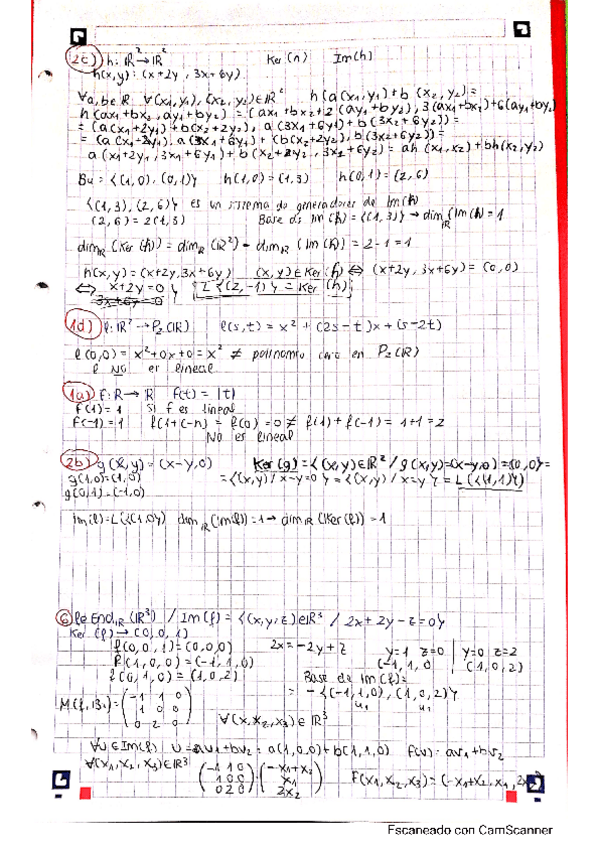 2c) h: ℝ² → ℝ² Ker(h) Im(h)
h(x,y): (x+2y, 3x+6y)
∀a,b∈ℝ ∀(x1,y1), (x2,y2)∈ℝ² h(a(x1,y1)+b(x2,y2)=
h(ax1+bx2, ay1+by2) = (ax1+bx2+2(ay1+by2), 3(ax1+bx2)+6(ay1+by2)
=(a(x1+2y1)+b(x2+2y2), a(3x1+6y1)+b(3x2+6y2))=
=(a(x1+2y1), a(3x1+6y1)+(b(x2+2y2), b(3x2+6y2))=
a(x1+2y1, 3x1+6y1)+b(x2+2y2, 3x2+6y2) = ah(x1,x2)+bh(x2,y2)
Bu = {(1,0), (0,1)} h(1,0)=(1,3) h(0,1)=(2,6)
{(1,3), (2,6)} es un sistema de generadores de Im(h)
(2,6) = 2(1,3) Base de Im(h) = {(1,3)} → dim ℝ (Im(h)=1
dim ℝ (Ker(h)) = dim ℝ (ℝ²) - dim ℝ (Im(h)) = 2-1=1
h(x,y) = (x+2y, 3x+6y) (x,y)∈Ker(h) ⟺ (x+2y, 3x+6y) = (0,0)
⟺ x+2y=0 L{(2,-1)} = Ker(h)
3x+6y=0
1d) l: ℝ² → P2(ℝ) l(s,t) = x² + (2s-t)x + (s-2t)
l(0,0) = x²+0x+0 = x² ≠ polinomio cero en P2(ℝ)
l NO es lineal
1a) f: ℝ → ℝ f(t) = |t|
f(1)=1 Si f es lineal
f(-1)=1 f(1+(-1)) = f(0) = 0 ≠ f(1)+f(-1) = 1+1=2
NO es lineal
2b) g(x,y) = (x-y,0) Ker(g) = {(x,y)∈ℝ² / g(x,y)=(x-y,0)=(0,0)}=
g(1,0)=(1,0) = {(x,y) / x-y=0} = {(x,y) / x=y} = L({(1,1)})
g(0,1)=(-1,0)
im(f)=L({(1,0)} dim ℝ (im(f)) = 1 → dim ℝ (Ker(f)) = 1
6 f∈End ℝ (ℝ³) / Im(f) = {(x,y,z)∈ℝ³ / 2x+2y-z=0}
Ker(f) → (0,0,1)
f(0,0,1)=(0,0,0) 2x=-2y+z y=1 z=0 | y=0 z=2
f(1,0,0)=(-1,1,0) (-1,1,0 (1,0,2)
f(0,1,0)=(1,0,2) Base de Im(f)=
= {(-1,1,0), (1,0,2)}
u1 u2
M(f,B) = (-1 1 0
1 0 0
0 2 0) ∀(x1,x2,x3)∈ℝ³
∀u∈Im(f) u=av1+bv2 = a(1,0,0)+b(1,1,0) f(u): av1+bv2
∀(x1,x2,x3)∈ℝ³ (-1 1 0
1 0 0
0 2 0) · (-x1+x2
x1
2x2) f(x1,x2,x3) = (-x1+x2, x1, 2x2)
Escaneado con CamScanner